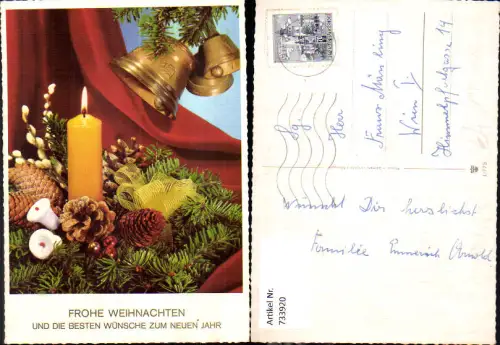 FROHE WEIHNACHTEN
UND DIE BESTEN WÜNSCHE ZUM NEUEN JAHR
Sg.
Herr
Wien
Himmelpfortgasse 14
wünscht Dir herzlichst
Familie Emmerich Arnold
Artikel Nr.
733920